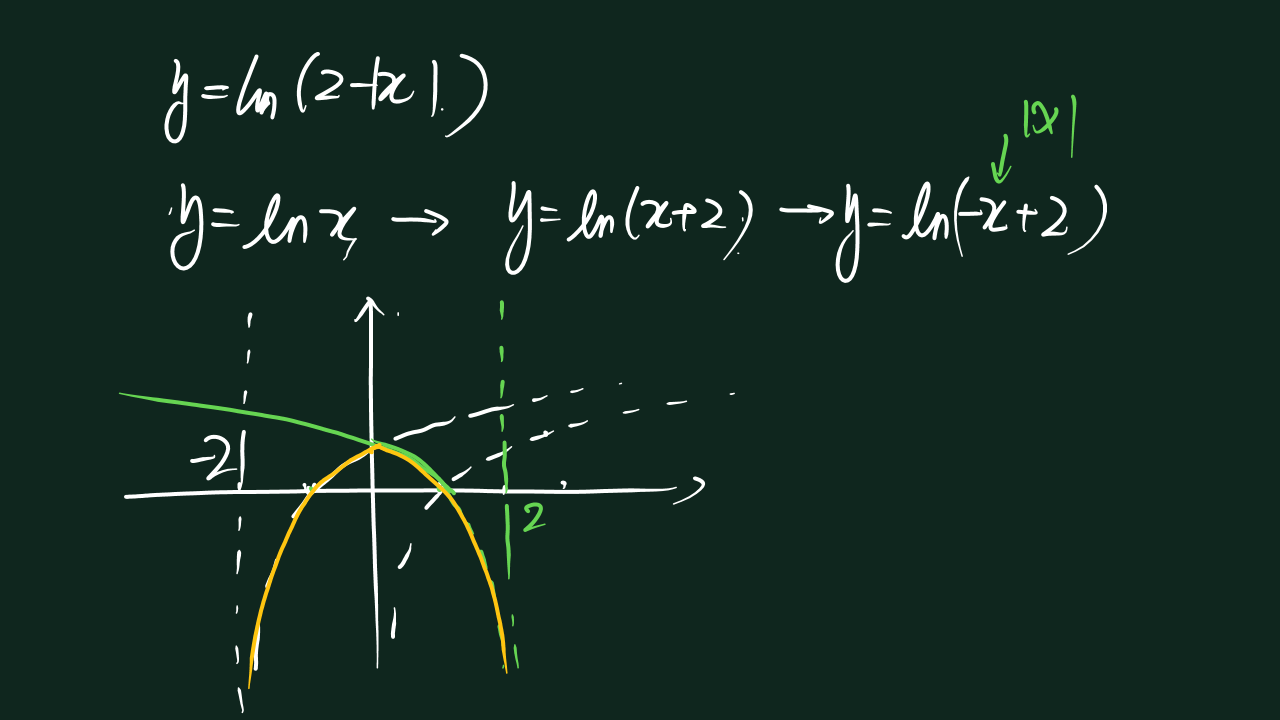 y=ln(2-|x|)
|x|
y=lnx → y=ln(x+2) → y=ln(-x+2)
-2
2